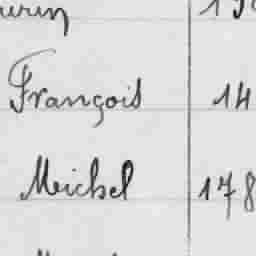 François 14
Michel 178